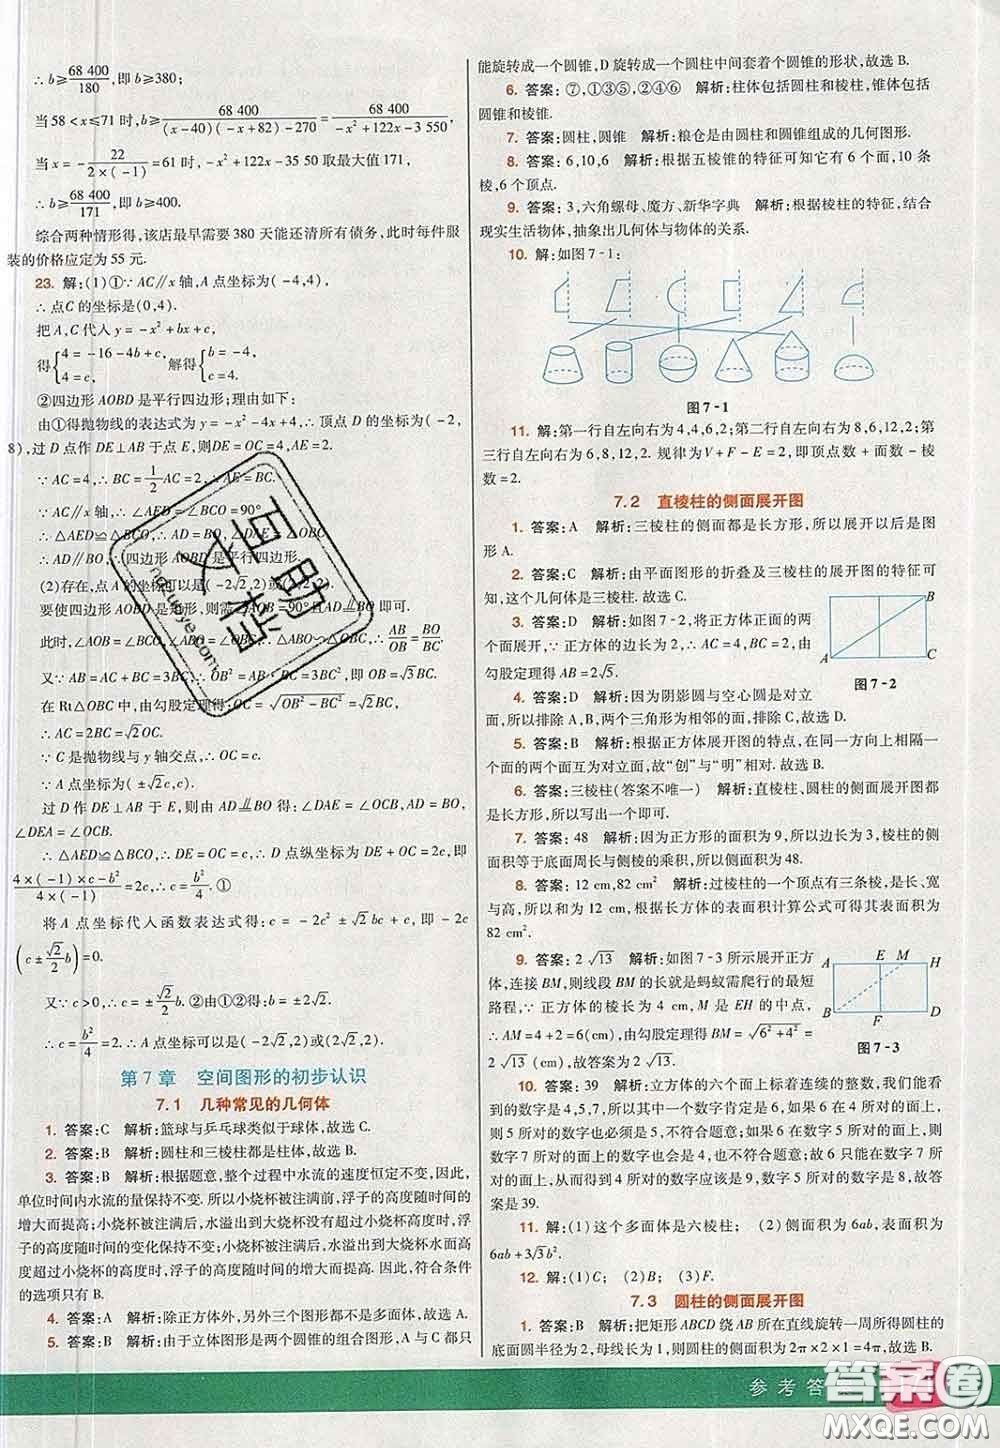 ∴ b≥68 400/180,即 b≥380;
当 58<x≤71 时,b≥68 400/((x-40)(-x+82)-270)=68 400/(-x²+122x-3 550),
当 x=-22/(2×(-1))=61 时,-x²+122x-35 50 取最大值 171,
∴ b≥68 400/171,即 b≥400.
综合两种情形得,该店最早需要 380 天能还清所有债务,此时每件服
装的价格应定为 55 元.
23. 解:(1)①∵ AC∥x 轴,A 点坐标为(-4,4),
∴ 点C 的坐标是(0,4).
把 A,C 代入 y=-x²+bx+c,
得{4=-16-4b+c, 4=c, 解得{b=-4, c=4.
②四边形 AOBD 是平行四边形;理由如下:
由①得抛物线的表达式为 y=-x²-4x+4,∴ 顶点 D 的坐标为(-2,
8),过 D 点作 DE⊥AB 于点 E,则DE=OC=4,AE=2.
∵ AC=4,∴ BC=1/2 AC=2,∴ AE=BC.
∵ AC∥x 轴,∴ ∠AED=∠BCO=90°,
∴ △AED≌△BCO,∴ AD=BO,∠DAE=∠OBC,
∴ AD∥BO,∴ 四边形 AOBD 是平行四边形.
(2)存在,点 A 的坐标可以是(-2√2,2)或(2√2,2).
要使四边形 AOBD 是矩形,则需∠AOB=90° 即可.
此时,∠AOB=∠BCO=90°,∴ △ABO∽△OBC,∴ AB/OB=BO/BC.
又∵ AB=AC+BC=3BC,∴ OB²=AB·BC=3BC²,即 OB=√3BC.
在 Rt△OBC 中,由勾股定理得 OC=√(OB²-BC²)=√2BC,
∴ AC=2BC=√2OC.
∵ C 是抛物线与 y 轴交点,∴ OC=c.
∴ A 点坐标为(±√2c,c).
过 D 作 DE⊥AB 于 E,则由 AD∥BO 得:∠DAE=∠OCB,AD=OB,
∠DEA=∠OCB.
∴ △AED≌△BCO,∴ DE=OC=c,∴ D 点纵坐标为 DE+OC=2c,即
(4×(-1)×c-b²)/(4×(-1))=2c,∴ c=b²/4. ①
将 A 点坐标代入函数表达式得:c=-2c²±√2bc+c,即-2c
(c±√2/2 b)=0.
又∵ c>0,∴ c=±√2/2 b. ②由①②得:b=±2√2.
∴ c=b²/4=2.∴ A 点坐标可以是(-2√2,2)或(2√2,2).
第 7 章 空间图形的初步认识
7.1 几种常见的几何体
1. 答案:C 解析:篮球与乒乓球类似于球体,故选 C.
2. 答案:B 解析:圆柱和三棱柱都是柱体,故选 B.
3. 答案:B 解析:根据题意,整个过程中水流的速度恒定不变.因此,
单位时间内水流的量保持不变.所以小烧杯被注满前,浮子的高度随时间的
增大而提高;小烧杯被注满时,水溢出到大烧杯没有与小烧杯相平时,浮
子的高度随时间的变化保持不变;小烧杯被注满时,水溢出到大烧杯水面
高度超过小烧杯的高度时,浮子的高度随时间的增大而提高,符合条件
的选项只有 B.
4. 答案:A 解析:除正方体外,另外三个图形都不是多面体,故选 A.
5. 答案:B 解析:由于立体图形是两个圆锥的组合图形,A 和 C 都只
能旋转成一个圆锥,D 旋转成一个圆柱中间套着个圆锥的形状,故选 B.
6. 答案:⑦,①③⑤,②④⑥ 解析:柱体包括圆柱和棱柱,锥体包括
圆锥和棱锥.
7. 答案:圆柱,圆锥 解析:粮仓是由圆柱和圆锥组成的几何图形.
8. 答案:6,10,6 解析:根据五棱锥的特征可知它有 6 个面,10 条
棱,6 个顶点.
9. 答案:3,六角螺母、魔方、新华字典 解析:根据棱柱的特征,结合
现实生活物体,抽象出几何体与物体的关系.
10. 解:如图 7-1:
图 7-1
11. 解:第一行自左向右为 4,4,6,2;第二行自左向右为 8,6,12,2;第
三行自左向右为 6,8,12,2. 规律为 V+F-E=2,即顶点数+面数-棱
数=2.
7.2 直棱柱的侧面展开图
1. 答案:A 解析:三棱柱的侧面都是长方形,所以展开以后是图
形 A.
2. 答案:C 解析:由平面图形的折叠及三棱柱的展开图的特征可
知,这个几何体是三棱柱.故选 C.
3. 答案:D 解析:如图 7-2,将正方体正面的两
个面展开,∵ 正方体的边长为 2,∴ AC=4,BC=2,由
勾股定理得 AB=2√5.
A B C
图 7-2
4. 答案:D 解析:因为阴影圆与空心圆是对立
面,所以排除 A,B,两个三角形为相邻的面,排除 C,故选 D.
5. 答案:B 解析:根据正方体展开图的特点,在同一方向上相隔一
个面的两个面互为对立面,故“创”与“明”相对.故选 B.
6. 答案:三棱柱(答案不唯一) 解析:直棱柱、圆柱的侧面展开图都
是长方形,所以写出一个即可.
7. 答案:48 解析:因为正方形的面积为 9,所以边长为 3,棱柱的侧
面积等于底面周长与侧棱的乘积,所以侧面积为 48.
8. 答案:12 cm,82 cm² 解析:过棱柱的一个顶点有三条棱,长、宽
与高,所以和为 12 cm,根据长方体的表面积计算公式可得其表面积为
82 cm².
9. 答案:2√13 解析:如图 7-3 所示展开正方体,
连接 BM,则线段 BM 的长就是蚂蚁需爬行的最短
路程,∵ 正方体的棱长为 4 cm,M 是 EH 的中点,
∴ AM=4+2=6(cm),由勾股定理得 BM=√(6²+4²)=
2√13(cm),故答案为 2√13.
A E M H B F D
图 7-3
10. 答案:39 解析:立方体的六个面上标着连续的整数,我们能
看到的数字是 4,5,7,所以其中必有一个数字是 6,如果 6 在 4 所对的面上,
则 5 所对的数字也必须是 5,不符合题意;如果 6 在数字 7 所对的面上,
则数字 5 所对的数字也会是 4,不符合题意;故 6 只能在数字 5 所
对的面上,所以数字 4 所对的数字应该是 9,数字 7 所对的数字是 8,故答
案是 39.
11. 解:(1)这个多面体是六棱柱; (2)侧面积为 6ab,表面积为
6ab+3√3b².
12. 解:(1)C; (2)B; (3)F.
7.3 圆柱的侧面展开图
1. 答案:B 解析:把矩形 ABCD 绕 AB 所在直线旋转一周所得圆柱
的底面圆半径为 2,母线长为 1.故侧面积为 2π×2×1=4π,故选 B.
参考答
答案圈
MXQE.COM
互助文档